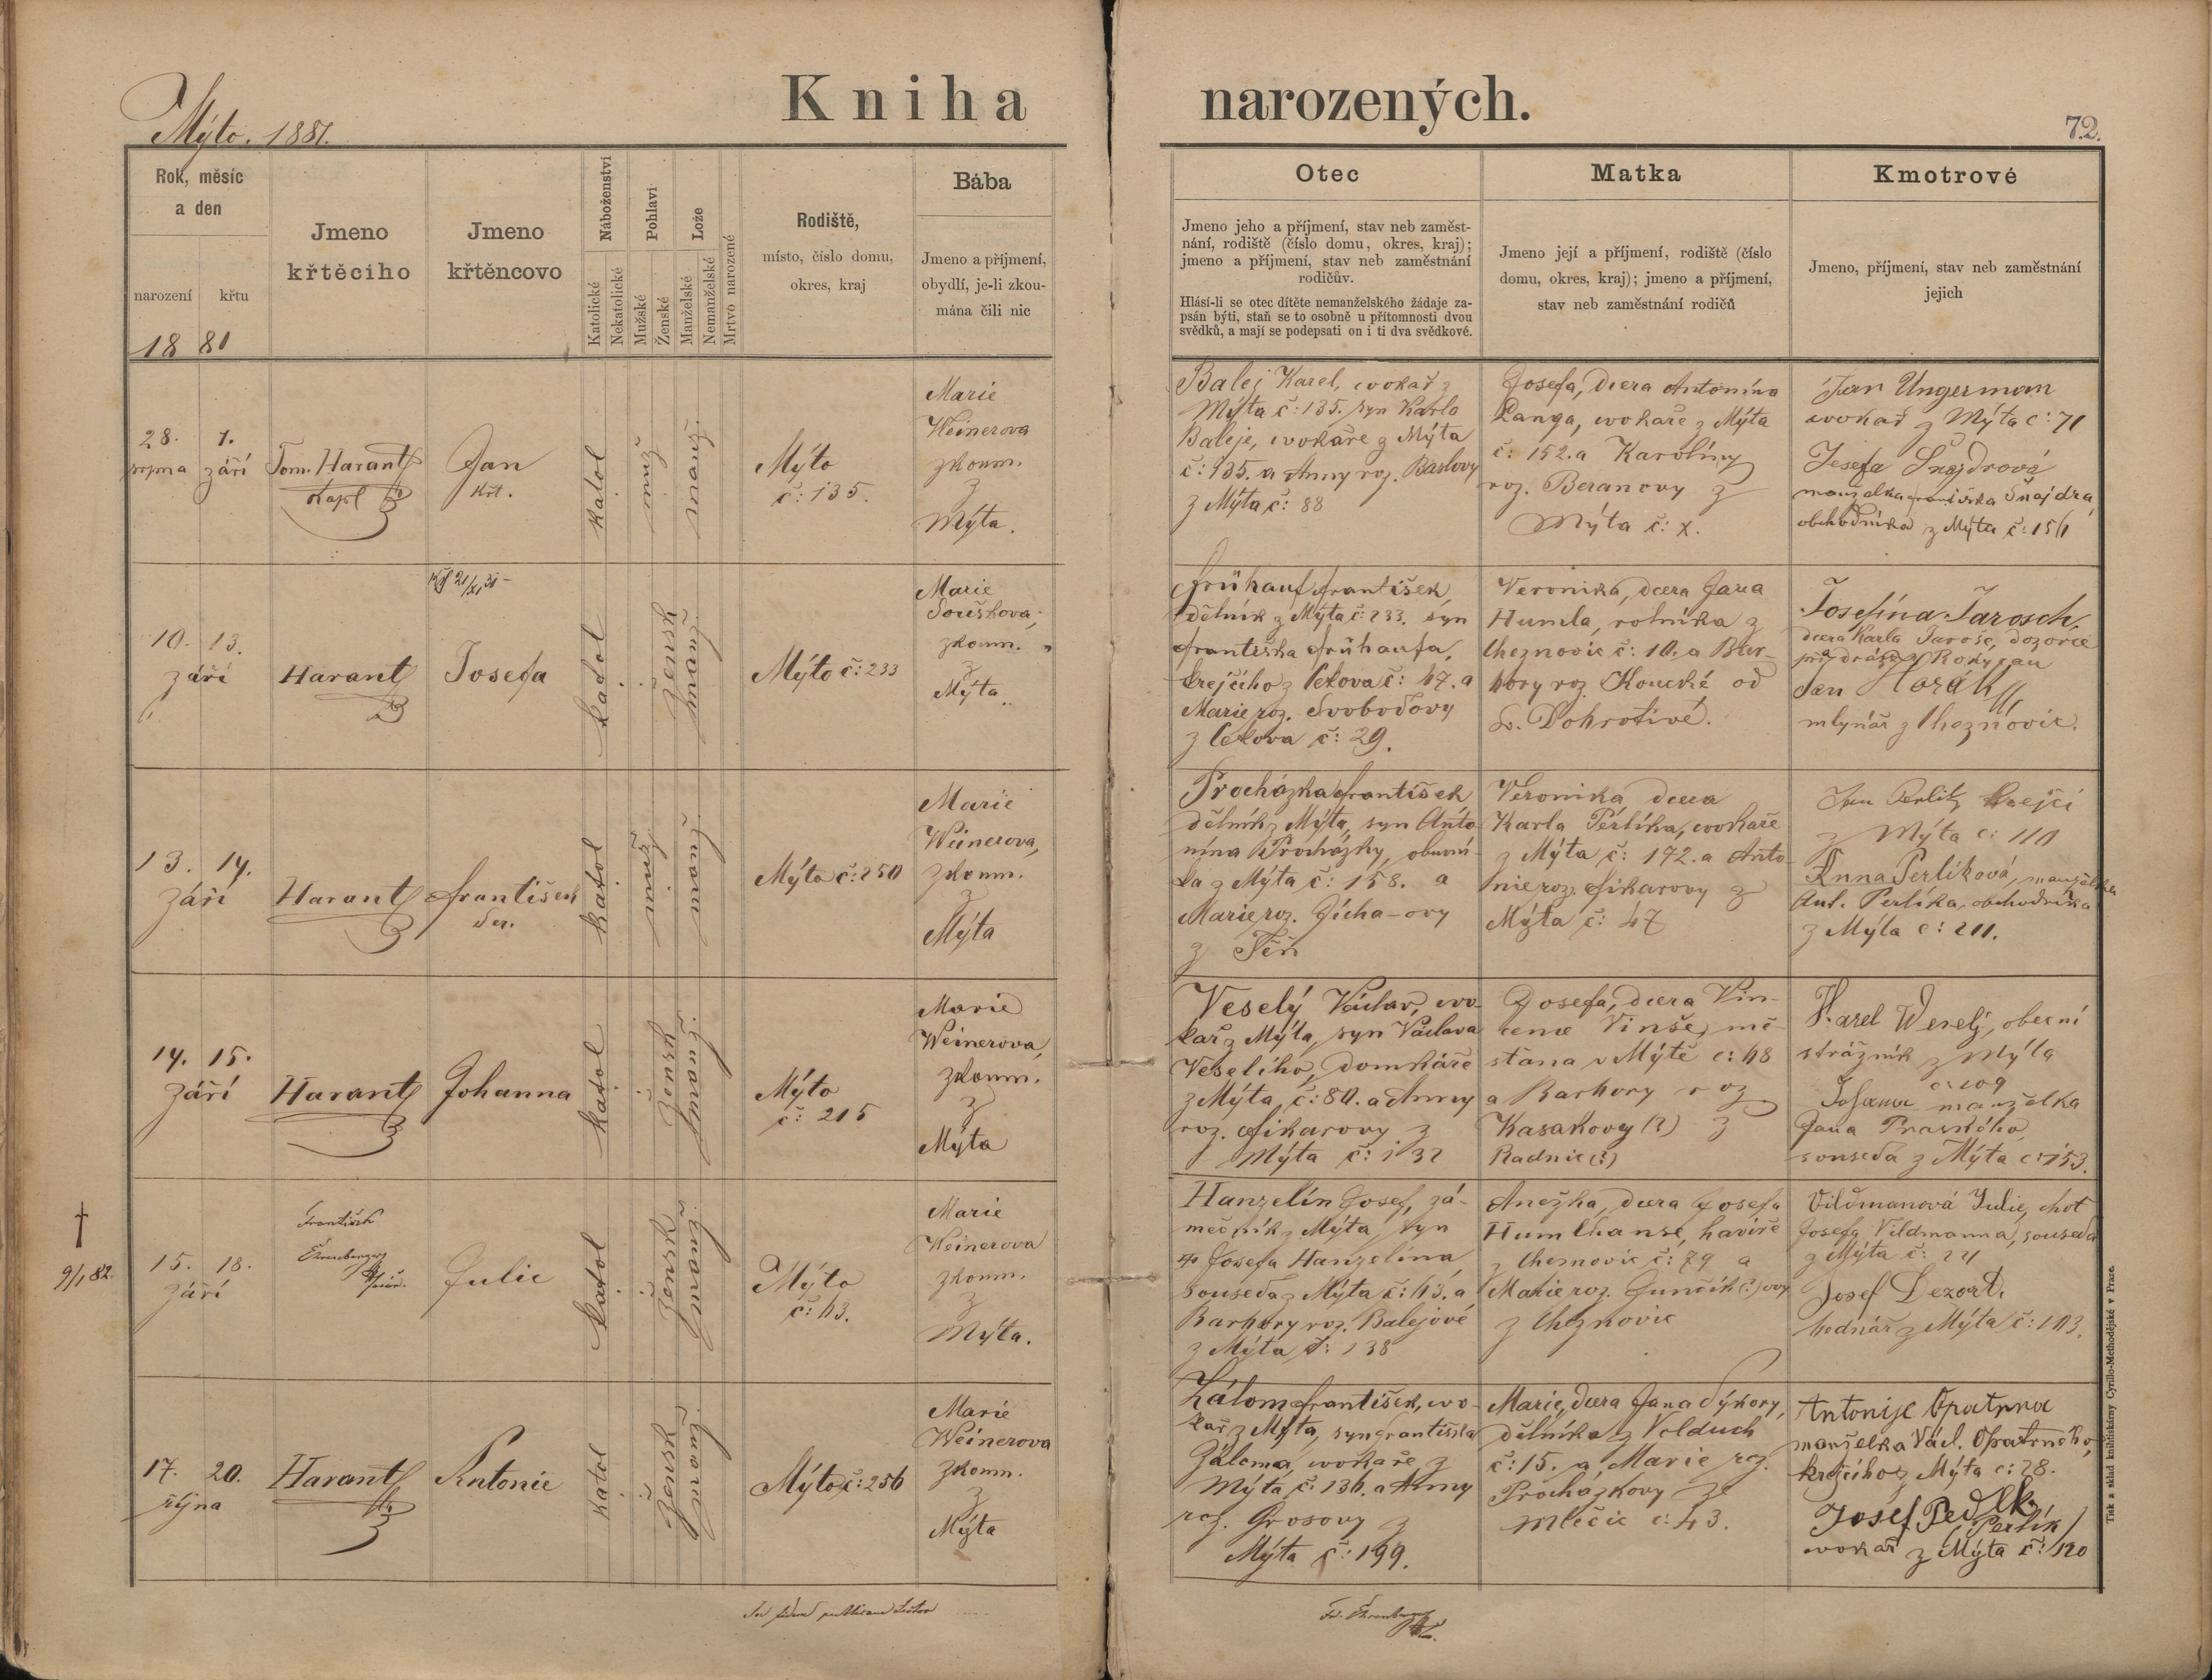 Kniha narozených.
Mýto. 1881.
72.
Rok, měsíc
a den
narození křtu
18 81
Jmeno
křtěcího
Jmeno
křtěncovo
Náboženství
Katolické
Nekatolické
Pohlaví
Mužské
Ženské
Lože
Manželské
Nemanželské
Mrtvo narozené
Rodiště,
místo, číslo domu,
okres, kraj
Bába
Jmeno a příjmení,
obydlí, je-li zkou-
mána čili nic
Otec
Jmeno jeho a příjmení, stav neb zaměst-
nání, rodiště (číslo domu, okres, kraj);
jmeno a příjmení, stav neb zaměstnání
rodičův.
Hlásí-li se otec dítěte nemanželského žádaje za-
psán býti, staň se to osobně u přítomnosti dvou
svědků, a mají se podepsati on i ti dva svědkové.
Matka
Jmeno její a příjmení, rodiště (číslo
domu, okres, kraj); jmeno a příjmení,
stav neb zaměstnání rodičů
Kmotrové
Jmeno, příjmení, stav neb zaměstnání
jejich
28. 1.
srpna září
Tom. Harant
kapl
Jan
křt.
katol
muž
manž.
Mýto
č: 135.
Marie
Weinerova
zkoum.
z
Mýta.
Balej Karel, cvokař z
Mýta č: 135. syn Karla
Baleje, cvokaře z Mýta
č: 135. a Anny roz. Baslovy
z Mýta č: 88
Josefa, dcera Antonína
Langa, cvokaře z Mýta
č: 152. a Karolíny
roz. Beranovy z
Mýta č: x.
Jan Ungerman
cvokař z Mýta č: 71
Josefa Šnajdrová
manželka Františka Šnajdra
obchodníka z Mýta č: 156
10. 13.
září
Harant
Josefa
katol
žensk
manž.
Mýto č: 233
Marie
Souškova,
zkoum.
z
Mýta
Frühauf František,
dělník z Mýta č: 233. syn
Františka Frühaufa,
krejčího z Cekova č: 47. a
Marie roz. Svobodovy
z Cekova č: 29.
Veronika, dcera Jana
Humla, rolníka z
Cheznovic č: 10. a Bar-
bory roz. Koucké od
Sv. Dobrotivé.
Josefína Jarosch,
dcera Karla Jaroše, dozorce
při dráze z Rokycan
Jan Horák
mlynář z Cheznovic.
13. 14.
září
Harant
František
Ser.
katol
muž
manž
Mýto č: 250
Marie
Weinerova,
zkoum.
z
Mýta
Procházka František
dělník z Mýta, syn Anto-
nína Procházky, obuvní-
ka z Mýta č: 158. a
Marie roz. Jícha-ovy
z Těň
Veronika dcera
Karla Perlíka, cvokaře
z Mýta č: 172. a Anto-
nie roz. Fikarovy z
Mýta č: 47
Jan Perlik krejčí
z Mýta č: 110
Anna Perlíková, manželka
Ant. Perlíka, obchodníka
z Mýta č: 211.
14. 15.
září
Harant
Johanna
katol
žensk
manž.
Mýto
č: 215
Marie
Weinerova,
zkoum.
z
Mýta
Veselý Václav, cvo-
kař z Mýta, syn Václava
Veselího, domkáře
z Mýta, č: 80. a Anny
roz. Fikarovy z
Mýta č: 132
Josefa, dcera Vin-
cence Vinše, mě-
šťana v Mýtě č: 68
a Barbory roz
Kasakovy (?) z
Radnic (?)
Karel Weselý, obecní
strážník z Mýta
č: 109
Johanna manželka
Jana Praského,
souseda z Mýta č: 153.
†
9/1 82.
15. 18.
září
František
Ehrenberger
Julie
katol
žensk
manž.
Mýto
č: 63.
Marie
Weinerova
zkoum.
z
Mýta.
Hanzelín Josef, zá-
mečník z Mýta syn
Josefa Hanzelína,
souseda z Mýta č: 63. a
Barbory roz. Balejové
z Mýta č: 138
Anežka, dcera Josefa
Humlhanse, havíře
z Cheznovic č: 79 a
Marie roz. Gunčik(?)ovy
z Cheznovic
Vildmanová Julie, choť
Josefa Vildmanna, souseda
z Mýta č: 24
Josef Dezort,
bednář z Mýta č: 103.
17. 20.
října
Harant
Antonie
katol
žensk
manž.
Mýto č: 256
Marie
Weinerova
zkoum.
z
Mýta
Zálom František, cvo-
kař z Mýta, syn Františka
Záloma, cvokaře z
Mýta č: 136. a Anny
roz. Grosovy z
Mýta č: 199.
Marie, dcera Jana Sýkory,
dělníka z Volduch
č: 15. a Marie roz.
Procházkovy ze
Mlečic č: 43.
Antonije Opatrna
manželka Václ. Opatrného,
krejčího z Mýta č: 28.
Josef Pedlk
/Perlík/
cvokař z Mýta č: 120
Fr. Ehrenberger
Tisk a sklad knihtiskárny Cyrillo-Methodějské v Praze.